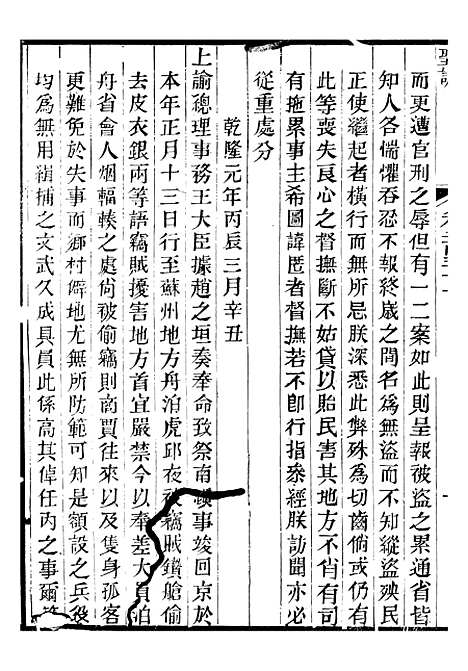 聖訓
而更遭官刑之辱但有一二案如此則呈報被盜之累通省皆
知人各惴懼吞忍不報終歲之間名為無盜而不知縱盜殃民
正使繼起者橫行而無所忌朕深悉此弊殊為切齒倘或仍有
此等喪失良心之督撫斷不姑貸以貽民害其地方不肖有司
有拖累事主希圖諱匿者督撫若不即行指參經朕訪聞亦必
從重處分
乾隆元年丙辰三月辛丑
上諭總理事務王大臣據趙之垣奏奉命致祭南嶽事竣回京於
本年正月十三日行至蘇州地方舟泊虎邱夜被竊賊鑽艙偷
去皮衣銀兩等語竊賊擾害地方首宜嚴禁今以奉差大員泊
舟省會人烟輻輳之處尚被偷竊則商賈往來以及隻身孤客
更難免於失事而鄉村僻地尤無所防範可知是額設之兵役
均為無用緝捕之文武久成具員此係高其倬任內之事爾等